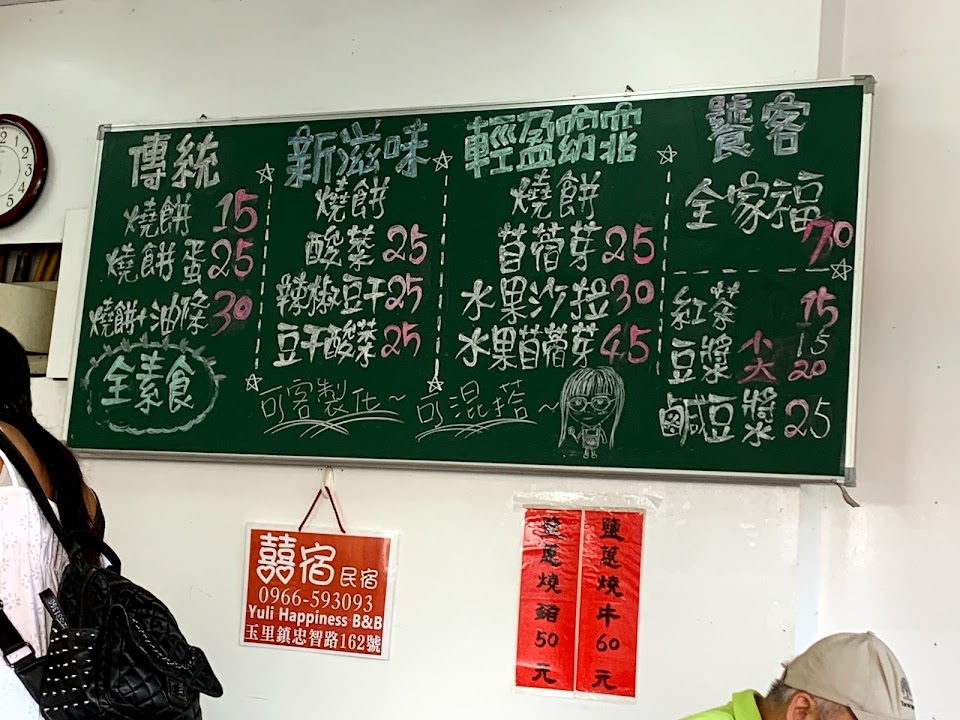 傳統
燒餅 15
燒餅蛋 25
燒餅+油條 30
全素食
新滋味
燒餅
酸菜 25
辣椒豆干 25
豆干酸菜 25
可客製化~
輕盈窈窕
燒餅
苜蓿芽 25
水果沙拉 30
水果苜蓿芽 45
可混搭~
饕客
全家福
70
紅茶 15
豆漿 小 15
大 20
鹹豆漿 25
囍宿民宿
0966-593093
Yuli Happiness B&B
玉里鎮忠智路162號
鹽蔥燒豬50元
鹽蔥燒牛60元